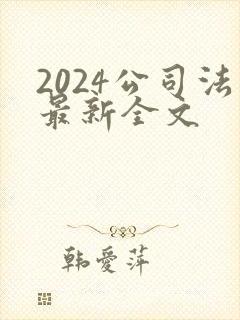 2024公司法
最新全文
韩爱萍